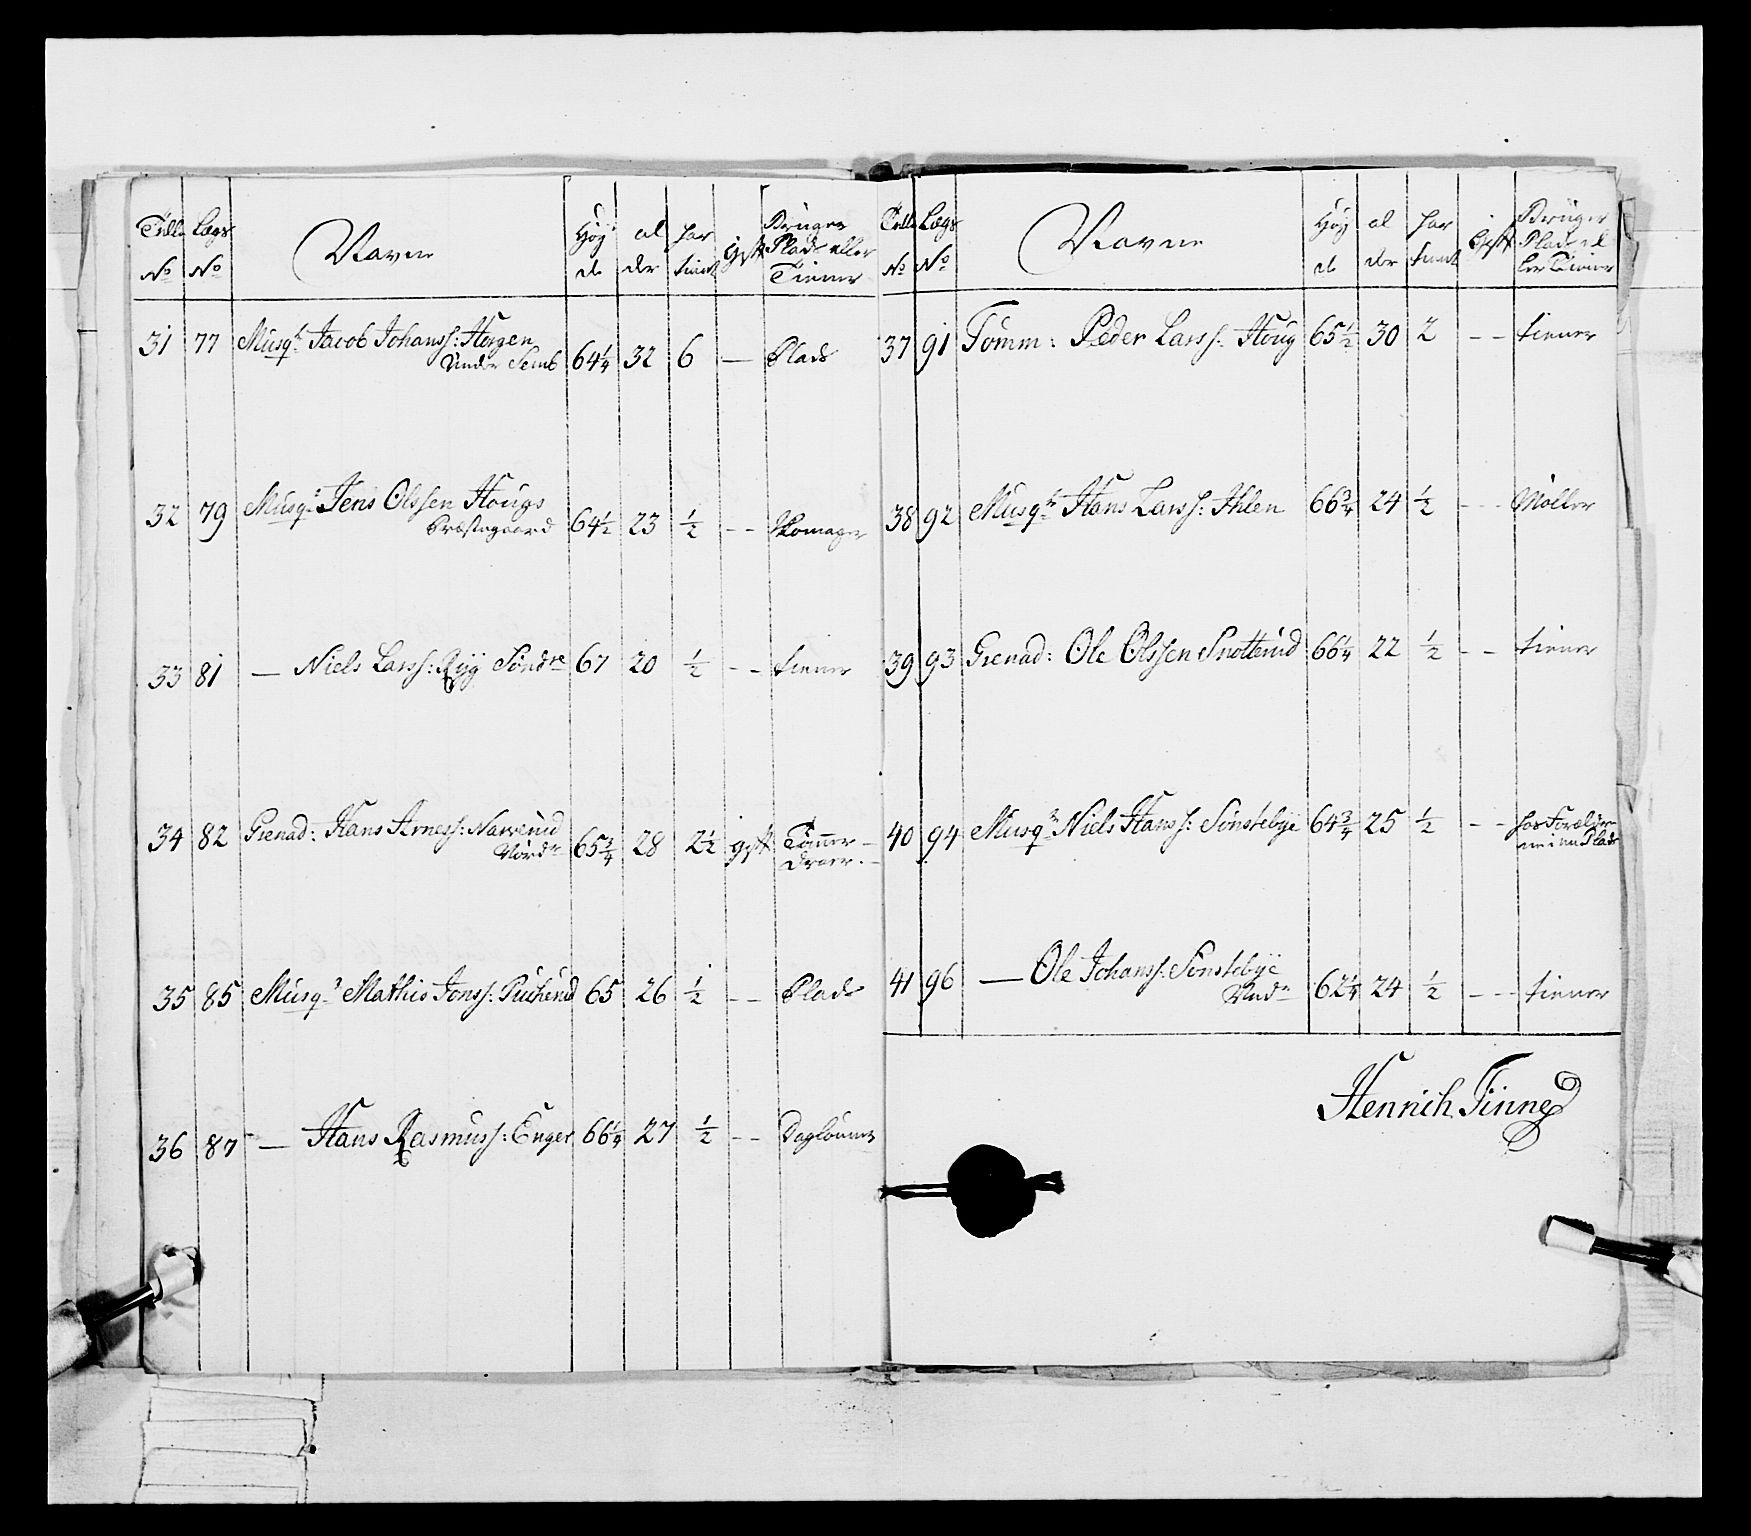 Tall Lægs Navne Høy al har gift Bruger
de der tient Plads eller
No No Tiener
31 77 Musqr Jacob Johanss: Horgen
Under Semb 64¼ 32 6 — Plads
32 79 Musqr Jens Olssen Hougs
Præstegaard 64½ 23 ½ - - Skomager
33 81 — Niels Larss: Ryg Søndre 67 20 ½ - - tiener
34 82 Grenad: Hans Arness: Narverud
Nordr 65¾ 28 2½ gift Tømmer-
drever. -
35 85 Musqr Mathis Jonss: 65 26 ½ - - Plads
36 87 — Hans Rasmuss: Enger 66¼ 27 ½ - - Daglønner
Tall Lægs Navne Høy al har gift Bruger
Plads el
No No de der tient ler Tiener
37 91 Tømm: Peder Larss: Houg 65½ 30 2 - - tiener
38 92 Musqr Hans Larss: Ihlen 66¾ 24 ½ - - Møller
39 93 Grenad: Ole Olssen Snotterud 66¼ 22 ½ - - tiener
40 94 Musqr Niels Hanss: Sønstebye 64¾ 25 ½ - - hos Forælder
ne i en Plads
41 96 — Ole Johanss: Sønstebye
Undr 62¼ 24 ½ - - tiener
Henrich Finne